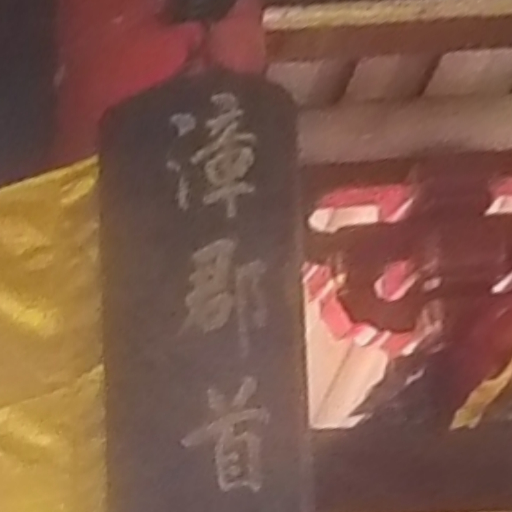 漳郡首